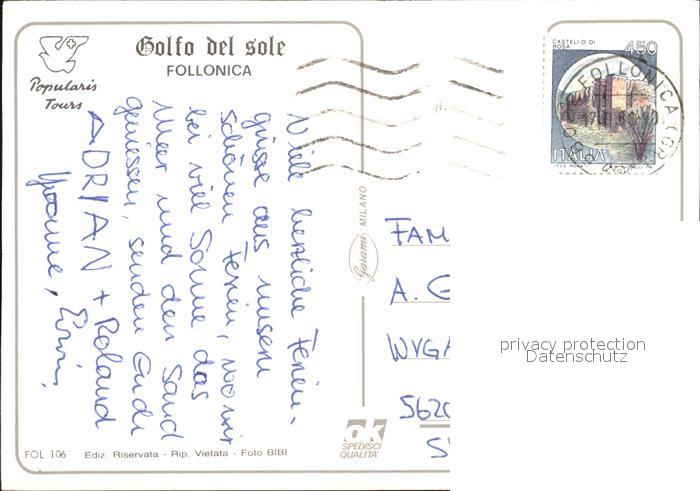 Golfo del sole
FOLLONICA
Popularis
Tours
CASTELLO DI
BOSA
450
ITALIA
FOLLONICA (GR)
Viele herzliche Ferien-
grüsse aus unsern
schönen Ferien, wo wir
bei viel Sonne das
Meer und den Sand
geniessen, senden Euch
ADRIAN + Roland
Yvonne, Erwin.
Garami MILANO
FAM
A. G
WYGA
5620
S
privacy protection
Datenschutz
ok
SPEDISCI
QUALITA'
FOL 106 Ediz. Riservata - Rip. Vietata - Foto BIBI